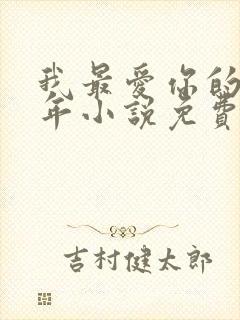 我最爱你的
年小說免費
吉村健太郎